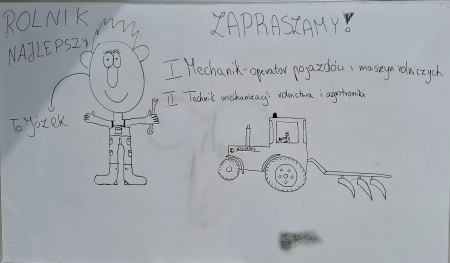 ROLNIK
NAJLEPSZY
To Józek
ZAPRASZAMY!
I Mechanik-operator pojazdów i maszyn rolniczych
II Technik mechanizacji rolnictwa i agrotroniki